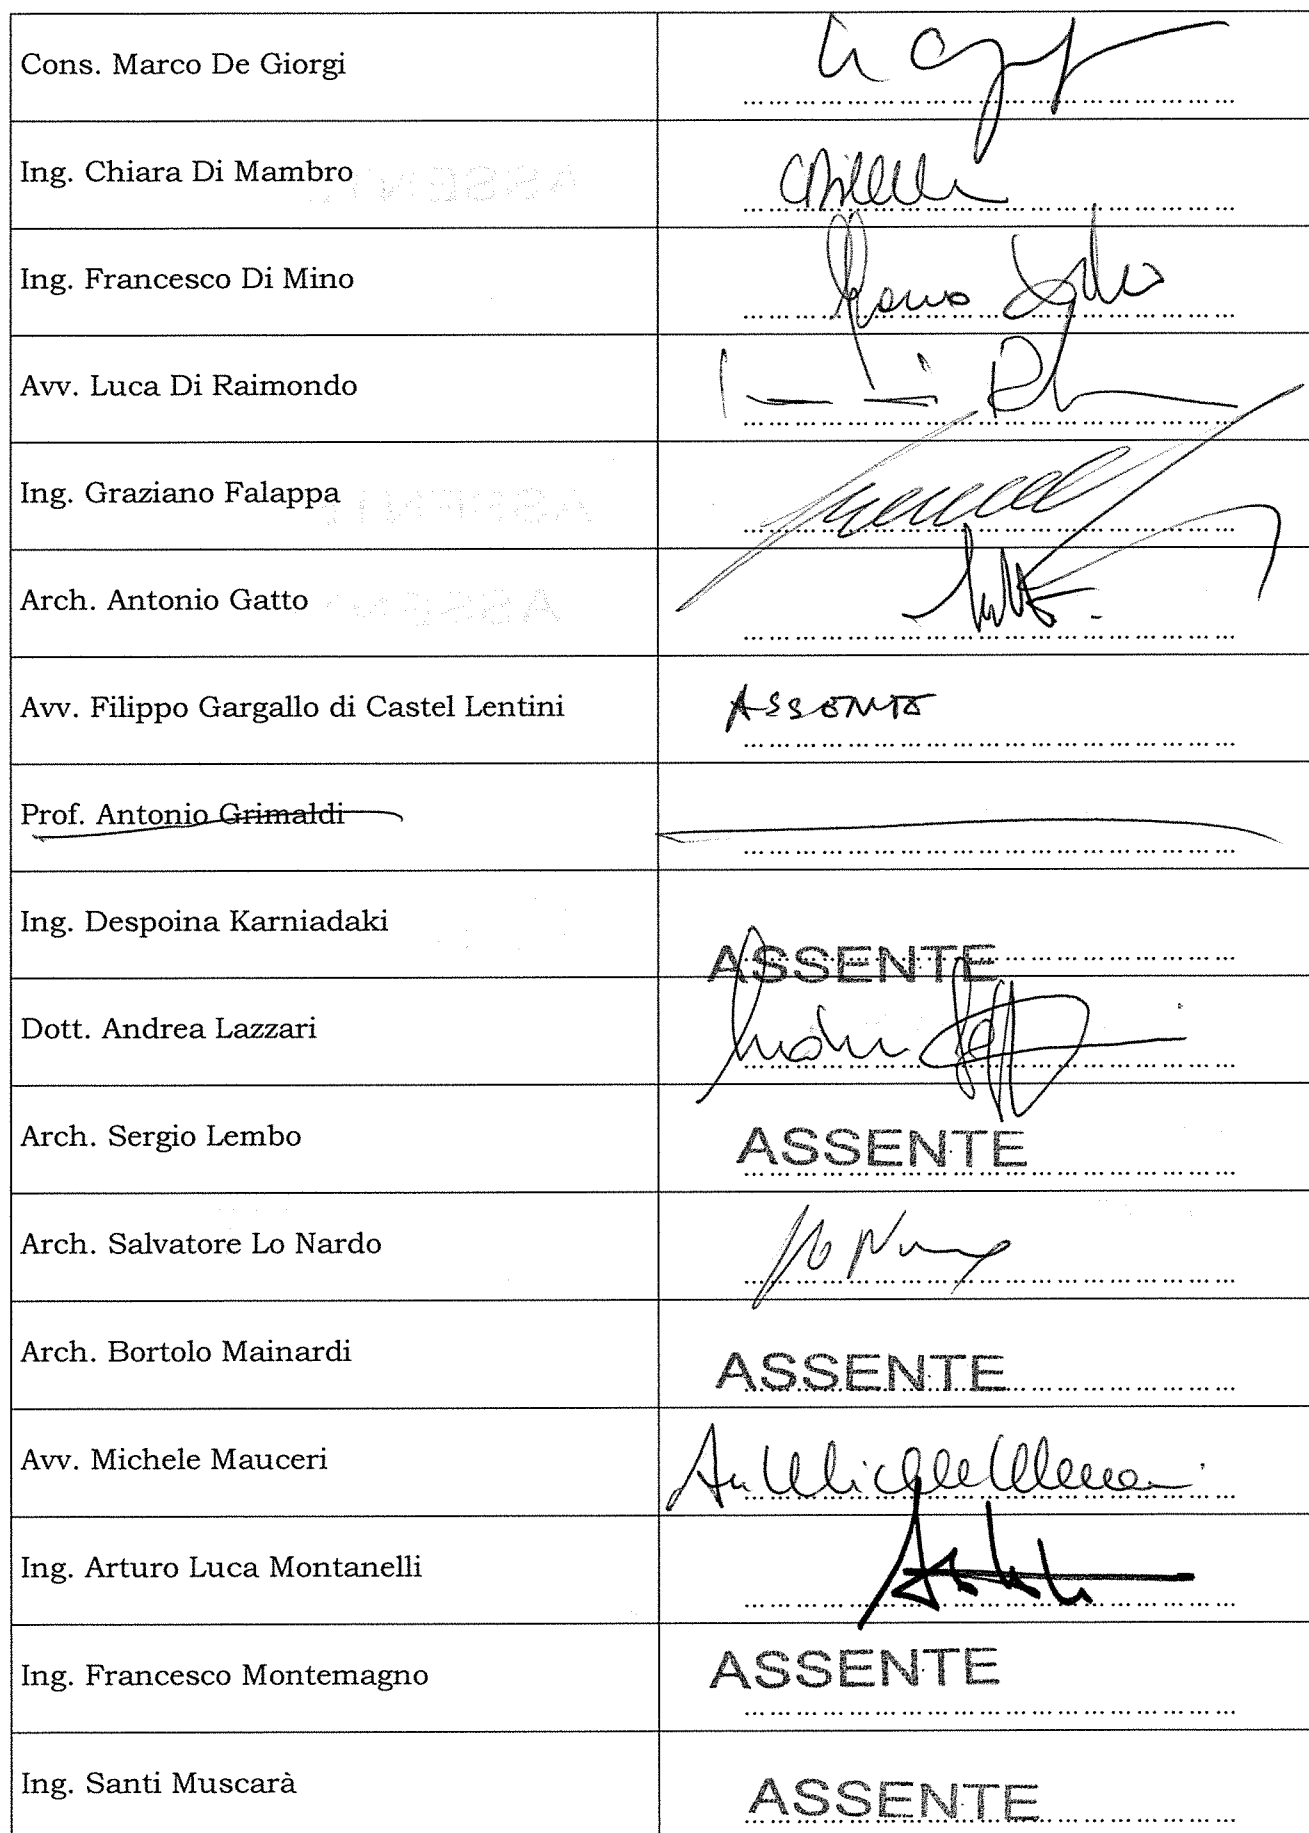 Cons. Marco De Giorgi
Ing. Chiara Di Mambro
Ing. Francesco Di Mino
Avv. Luca Di Raimondo
Ing. Graziano Falappa
Arch. Antonio Gatto
Avv. Filippo Gargallo di Castel Lentini ASSENTE
Prof. Antonio Grimaldi
Ing. Despoina Karniadaki ASSENTE
Dott. Andrea Lazzari
Arch. Sergio Lembo ASSENTE
Arch. Salvatore Lo Nardo
Arch. Bortolo Mainardi ASSENTE
Avv. Michele Mauceri
Ing. Arturo Luca Montanelli
Ing. Francesco Montemagno ASSENTE
Ing. Santi Muscarà ASSENTE